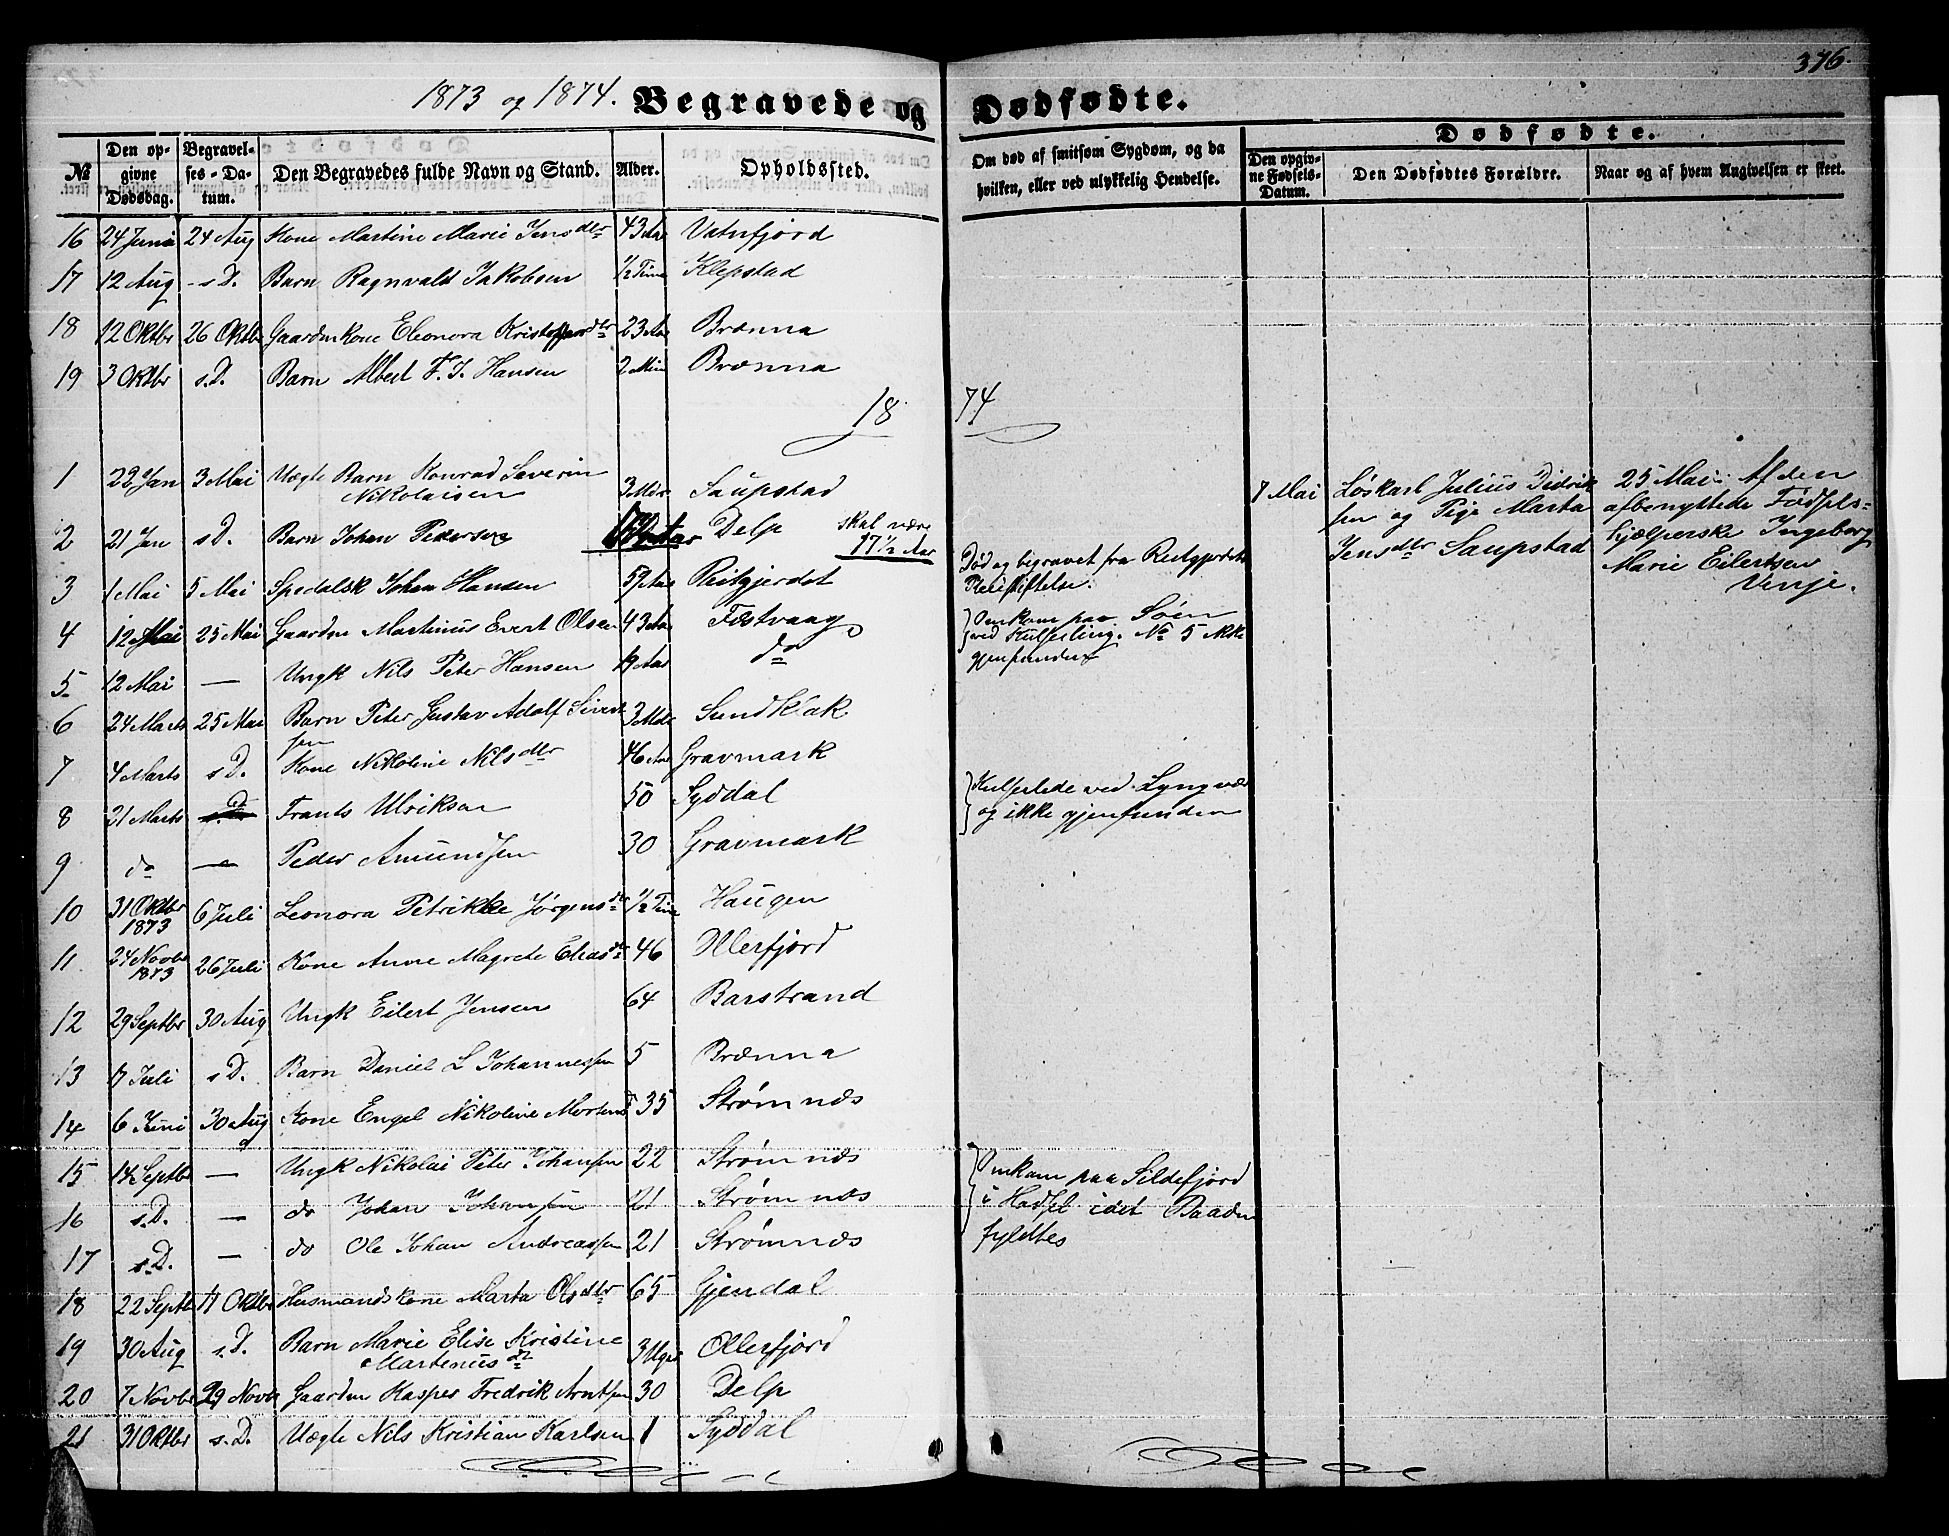 376.
1873 og 1874. Begravede og Dødfødte.
№ Den opgivne Dødsdag. Begravelses-Datum. Den Begravedes fulde Navn og Stand. Alder. Opholdssted. Om død af smitsom Sygdom, og da hvilken, eller ved ulykkelig Hendelse. Dødfødte. Den opgivne Fødsels-Datum. Den Dødfødtes Forældre. Naar og af hvem Angivelsen er skeet.
16 24 Juni 24 Aug Kone Martine Marie Jensdtr 43 Aar Vatnfjord
17 12 Aug s.D. Barn Ragnvald Jakobsen 1/2 Time Klepstad
18 12 Oktbr 26 Oktbr Gaardmkone Eleonora Kristoffersdtr 23 Aar Brænna
19 3 Oktbr s.D. Barn Albert F. J. Hansen 2 Min Brænna
1874
1 22 Jan 3 Mai Uægte Barn Konrad Severin
Nikolaisen 3 Mdr Saupstad
2 21 Jan s.D. Barn Johan Pedersen Delp skal være
17 1/2 Aar
3 1 Mai 5 Mai Spedalsk Johan Hansen 59 Aar Reitgjerdet Død og begravet fra Reitgjerdets
Pleiestiftelse.
4 12 Mai 25 Mai Gaardm Martinus Evert Olsen 43 Aar Festvaag Omkom paa Søen
ved Kulseiling. No 5 ikke
gjenfunden
5 12 Mai — Ungk Nils Peter Hansen 19 Aar do
6 24 Marts 25 Mai Barn Peter Gustav Adolf Sivert
sen 3 Mdr Sundklak
7 4 Marts s.D. Kone Nikoline Nilsdtr 46 Aar Gravmark
8 21 Marts Frants Ulriksen 50 Syddal Kulseilede ved Lyngvær
og ikke gjenfunden
9 do — Peder Amundsen 30 Gravmark
10 31 Oktbr
1873 6 Juli Leonora Petrikke Jørgensdtr 1/2 Time Haugen
11 24 Novbr
1873 26 Juli Kone Anne Magrete Eliasdtr 46 Ollerfjord
12 29 Septbr 30 Aug Ungk Eilert Jensen 64 Barstrand
13 17 Juli s.D. Barn Daniel L Johannessen 5 Brænna
14 6 Juni 30 Aug Kone Engel Nikoline Mortensd 35 Strømnæs
15 14 Septbr — Ungk Nikolai Peter Johansen 22 Strømnæs Omkom paa Sildefjord
i Hadsel idet Baaden
fyldtes
16 s.D. — do Johan Johansen 21 Strømnæs
17 s.D. — do Ole Johan Andreassen 21 Strømnæs
18 22 Septbr 11 Oktbr Husmandskone Marta Olsdtr 65 Gjendal
19 30 Aug s.D. Barn Marie Elise Kristine
Martinusdtr 3 Uger Ollerfjord
20 7 Novbr 29 Novbr Gaardm Kasper Fredrik Arntsen 30 Delp
21 31 Oktbr s.D. Uægte Nils Kristian Karlsen 1 Syddal
8 Mai Løskarl Julius Didrik
sen og Pige Marta
Jensdtr Saupstad
25 Mai: Af den
afbenyttede Fødsels-
hjælperske Ingeborg
Marie Eilertsen
Venje.